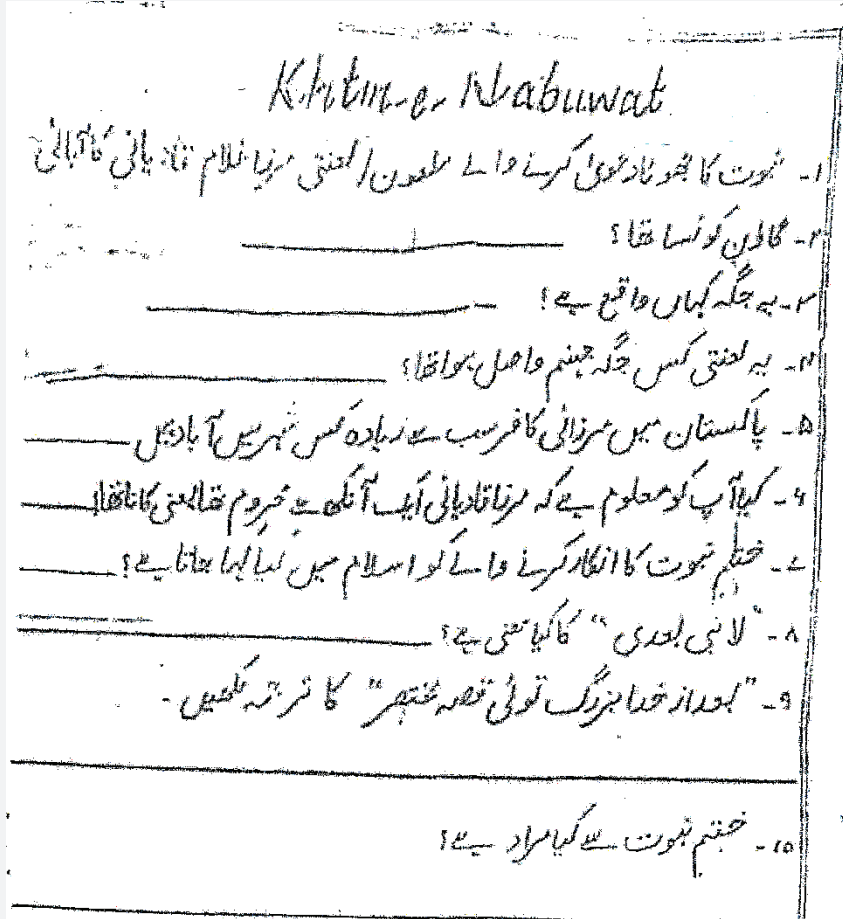 Khtm-e-Nabuwat
۱۔ نبوت کا جھوٹا دعویٰ کرنے والے ملعون/ لعنتی مرزا غلام قادیانی کا آبائی
۲۔ گاؤں کونسا تھا؟
۳۔ یہ جگہ کہاں واقع ہے؟
۴۔ یہ لعنتی کس جگہ جہنم واصل ہوا تھا؟
۵۔ پاکستان میں مرزائی کافر سب سے زیادہ کس شہر میں آباد ہیں
۶۔ کیا آپ کو معلوم ہے کہ مرزا قادیانی ایک آنکھ سے محروم تھا یعنی کانا تھا
۷۔ ختم نبوت کا انکار کرنے والے کو اسلام میں کیا کہا جاتا ہے؟
۸۔ "لا نبی بعدی" کا کیا معنی ہے؟
۹۔ "بعد از خدا بزرگ توئی قصہ مختصر" کا ترجمہ لکھیں۔
۱۰۔ ختم نبوت سے کیا مراد ہے؟